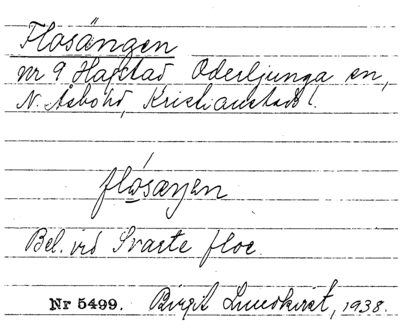 Flosängen
nr 9 Hagstad Oderljunga sn,
N. Åsbo hd, Kristianstads l.
flósaŋen
Bel. vid Svarte floe.
Nr 5499. Birgit Lundkvist, 1938.